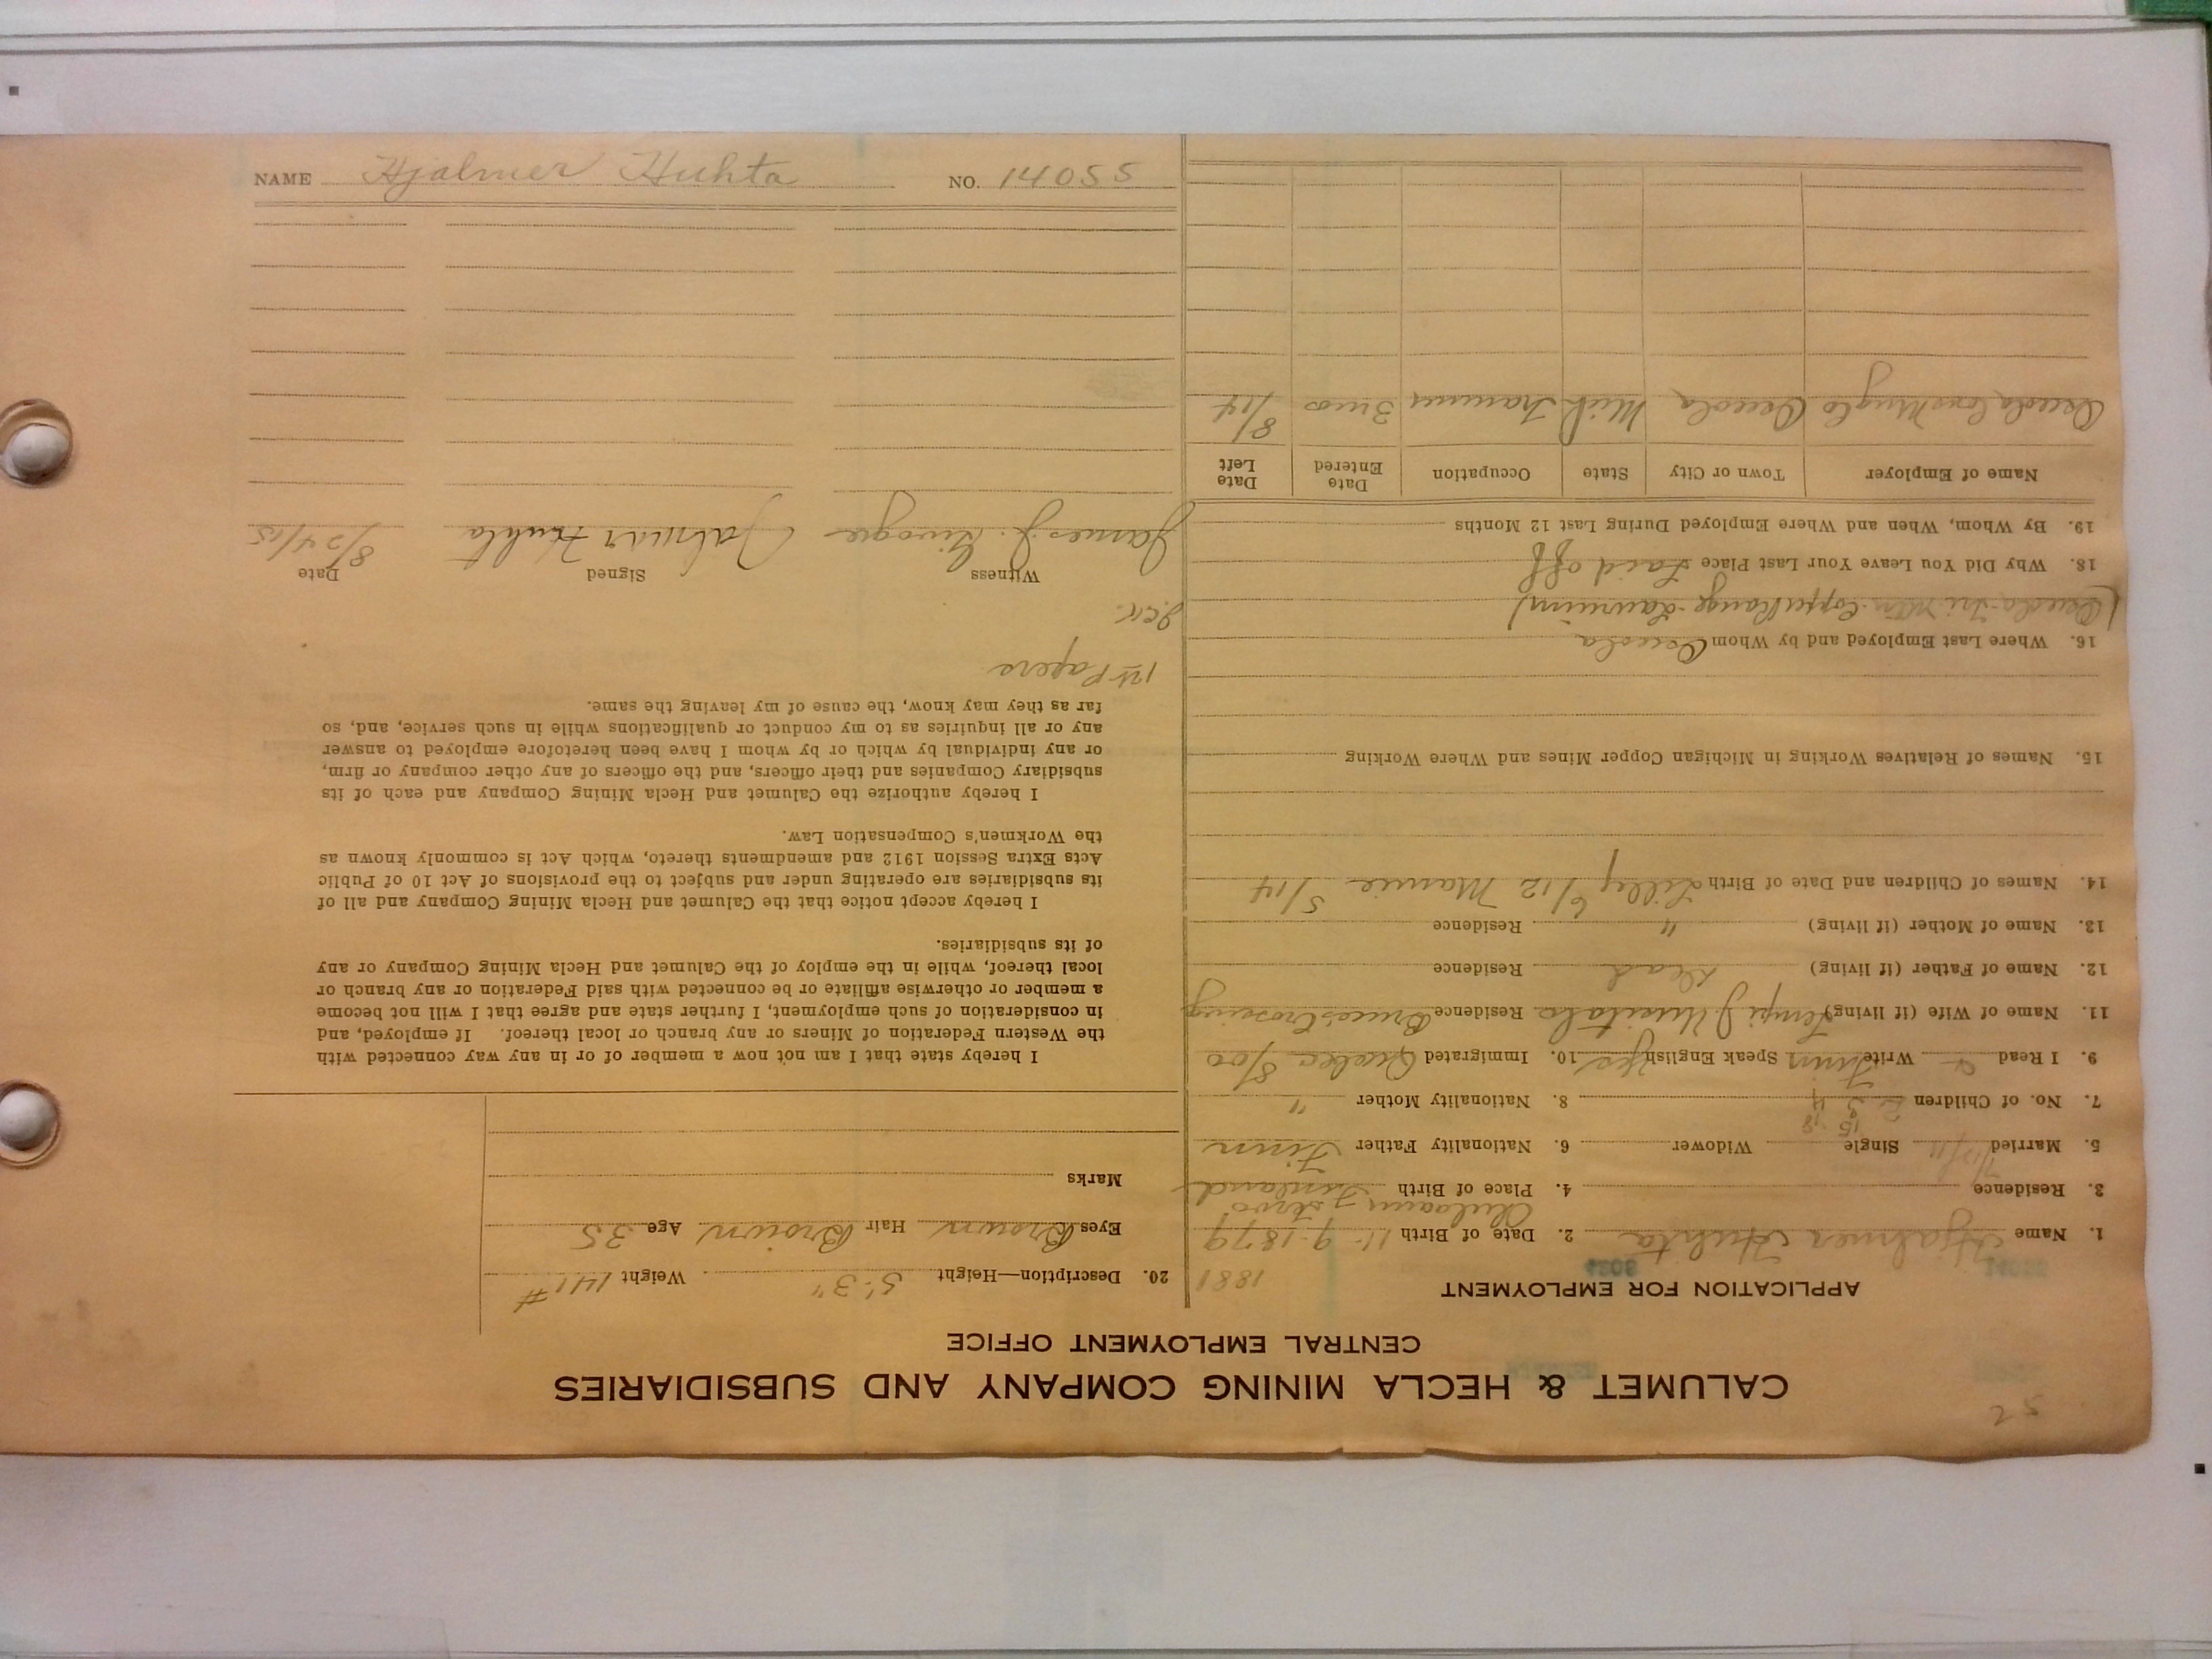 52
CALUMET & HECLA MINING COMPANY AND SUBSIDIARIES
CENTRAL EMPLOYMENT OFFICE
APPLICATION FOR EMPLOYMENT 1881
1. Name Hjalmer Huhta 2. Date of Birth 11-9-1879
3. Residence 4. Place of Birth Finland
5. Married 7/11 Single Widower 6. Nationality Father Finn
7. No. of Children 2 3 4 8. Nationality Mother "
9. I Read Write Finn Speak English Yes 10. Immigrated Quebec 8/00
11. Name of Wife (if living) Lempi J Residence Bruces Crossing
12. Name of Father (if living) Dead Residence
13. Name of Mother (if living) " Residence
14. Names of Children and Date of Birth Lilley 6/12 Mamie 5/14
15. Names of Relatives Working in Michigan Copper Mines and Where Working
16. Where Last Employed and by Whom Osceola
(Osceola - Tri Mtn - Copper Range - Laurium)
18. Why Did You Leave Your Last Place Laid off
19. By Whom, When and Where Employed During Last 12 Months
Name of Employer Town or City State Occupation Date Entered Date Left
Osceola Cons Mng Co Osceola Mich Trammer 3 mos 8/14
20. Description—Height 5'-3" Weight 141#
Eyes Brown Hair Brown Age 35
Marks
I hereby state that I am not now a member of or in any way connected with
the Western Federation of Miners or any branch or local thereof. If employed, and
in consideration of such employment, I further state and agree that I will not become
a member or otherwise affiliate or be connected with said Federation or any branch or
local thereof, while in the employ of the Calumet and Hecla Mining Company or any
of its subsidiaries.
I hereby accept notice that the Calumet and Hecla Mining Company and all of
its subsidiaries are operating under and subject to the provisions of Act 10 of Public
Acts Extra Session 1912 and amendments thereto, which Act is commonly known as
the Workmen's Compensation Law.
I hereby authorize the Calumet and Hecla Mining Company and each of its
subsidiary Companies and their officers, and the officers of any other company or firm,
or any individual by which or by whom I have been heretofore employed to answer
any or all inquiries as to my conduct or qualifications while in such service, and, so
far as they may know, the cause of my leaving the same.
1st Papers
Witness Signed Date
James J. Jalmar Huhta 8/24/15
NAME Hjalmer Huhta NO. 14055